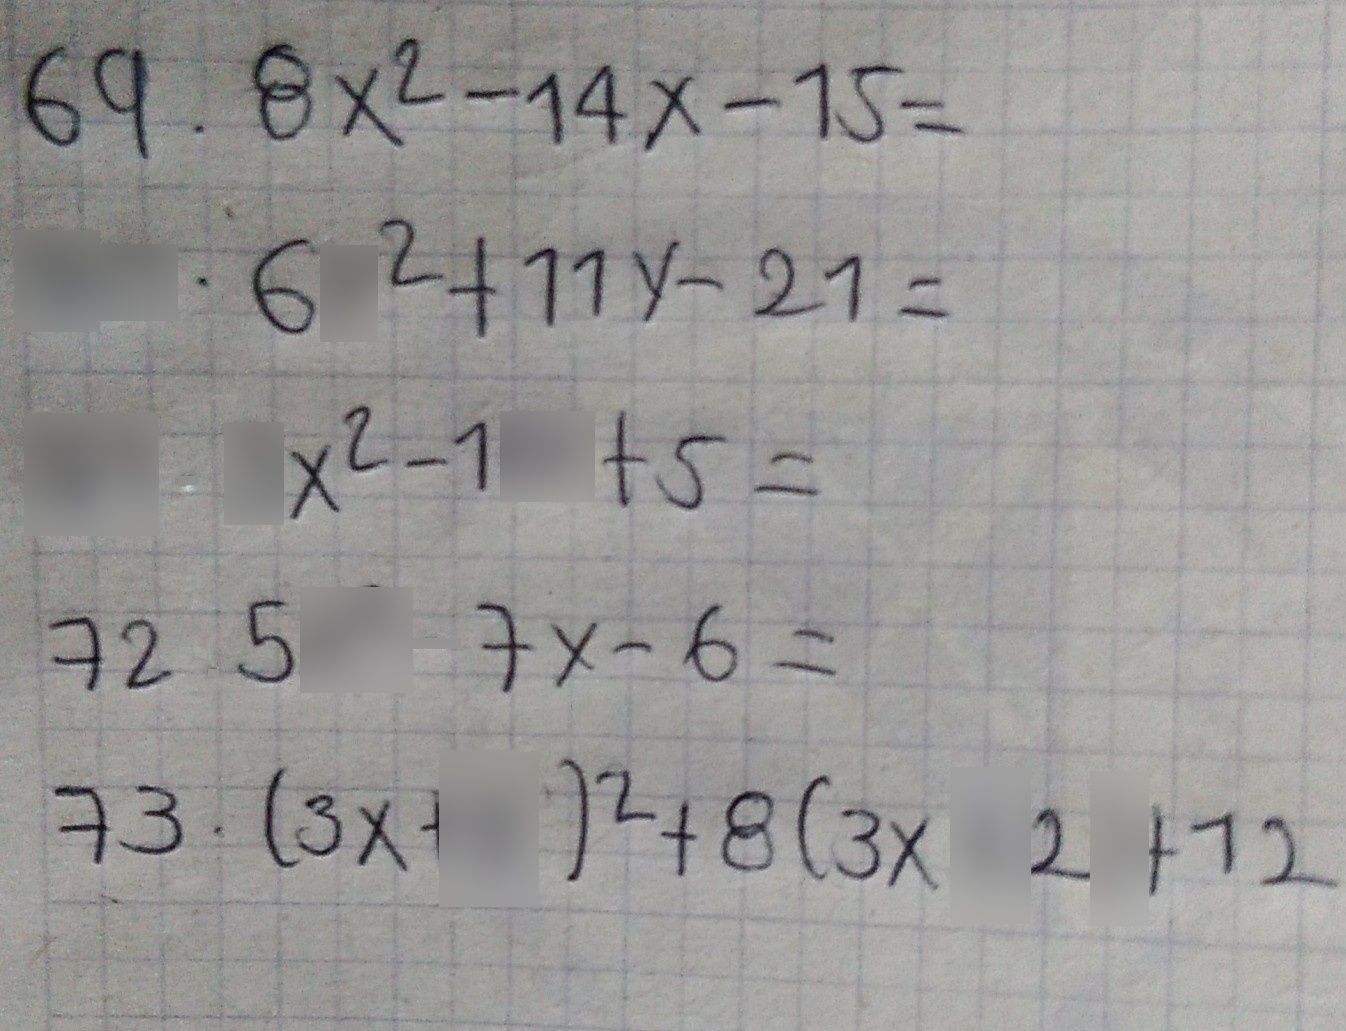 69. 8x²-14x-15=
. 6 ²+11y-21=
x²-1 +5=
72 5 7x-6=
73. (3x+ )²+8(3x 2 +12